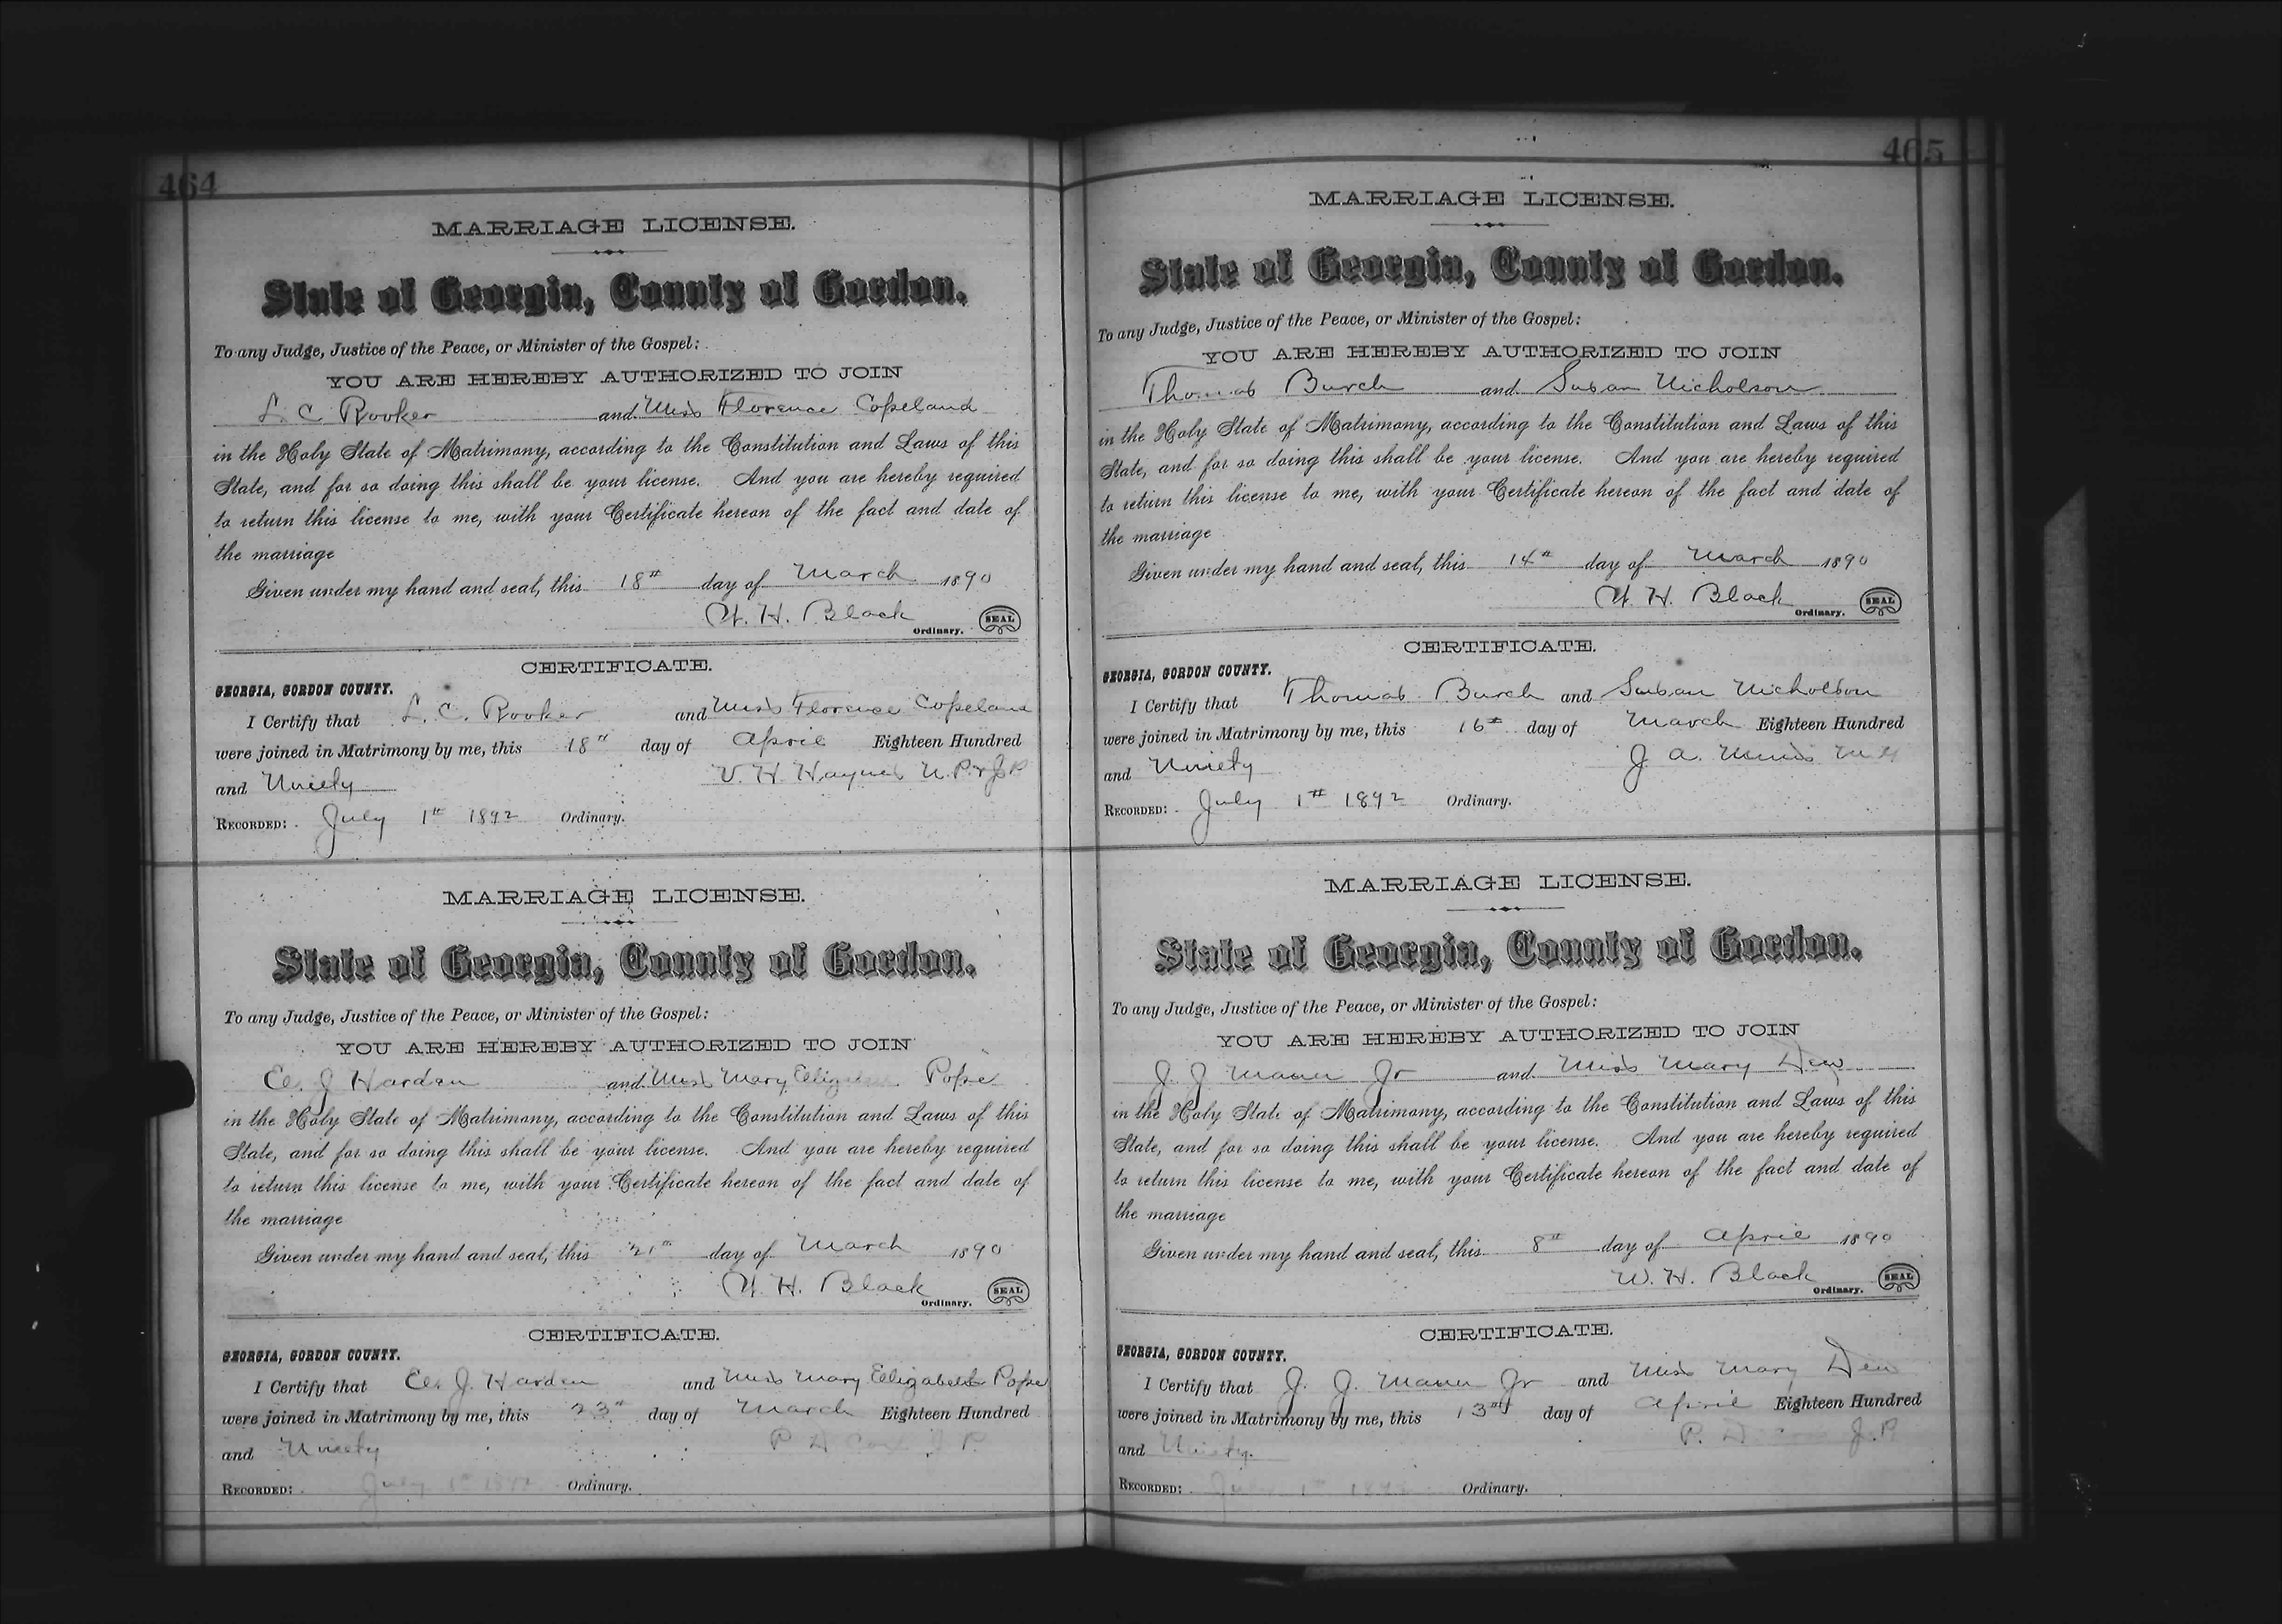 464
MARRIAGE LICENSE.
State of Georgia, County of Gordon.
To any Judge, Justice of the Peace, or Minister of the Gospel:
YOU ARE HEREBY AUTHORIZED TO JOIN
L. C. Rooker and Miss Florence Copeland
in the Holy State of Matrimony, according to the Constitution and Laws of this
State, and for so doing this shall be your license. And you are hereby required
to return this license to me, with your Certificate hereon of the fact and date of
the marriage
Given under my hand and seal, this 18th day of March 1890
W. H. Black
Ordinary. SEAL
CERTIFICATE.
GEORGIA, GORDON COUNTY.
I Certify that L. C. Rooker and Miss Florence Copeland
were joined in Matrimony by me, this 18" day of April Eighteen Hundred
and Ninety V. H. Haynes N. P. & J P
RECORDED: July 1st 1892 Ordinary.
MARRIAGE LICENSE.
State of Georgia, County of Gordon.
To any Judge, Justice of the Peace, or Minister of the Gospel:
YOU ARE HEREBY AUTHORIZED TO JOIN
J Harden and Miss Mary Elizabeth Pope
in the Holy State of Matrimony, according to the Constitution and Laws of this
State, and for so doing this shall be your license. And you are hereby required
to return this license to me, with your Certificate hereon of the fact and date of
the marriage
Given under my hand and seal, this 21st day of March 1890
W. H. Black
Ordinary. SEAL
CERTIFICATE.
GEORGIA, GORDON COUNTY.
I Certify that J. Harden and Miss Mary Elizabeth Pope
were joined in Matrimony by me, this 23rd day of March Eighteen Hundred
and Ninety P D Cox J P.
RECORDED: July 1st 1892 Ordinary.
465
MARRIAGE LICENSE.
State of Georgia, County of Gordon.
To any Judge, Justice of the Peace, or Minister of the Gospel:
YOU ARE HEREBY AUTHORIZED TO JOIN
Thomas Burch and Susan Nicholson
in the Holy State of Matrimony, according to the Constitution and Laws of this
State, and for so doing this shall be your license. And you are hereby required
to return this license to me, with your Certificate hereon of the fact and date of
the marriage
Given under my hand and seal, this 14th day of March 1890
W. H. Black
Ordinary. SEAL
CERTIFICATE.
GEORGIA, GORDON COUNTY.
I Certify that Thomas Burch and Susan Nicholson
were joined in Matrimony by me, this 16th day of March Eighteen Hundred
and Ninety J. A.
RECORDED: July 1st 1892 Ordinary.
MARRIAGE LICENSE.
State of Georgia, County of Gordon.
To any Judge, Justice of the Peace, or Minister of the Gospel:
YOU ARE HEREBY AUTHORIZED TO JOIN
J. J Mann Jr and Miss Mary Dew
in the Holy State of Matrimony, according to the Constitution and Laws of this
State, and for so doing this shall be your license. And you are hereby required
to return this license to me, with your Certificate hereon of the fact and date of
the marriage
Given under my hand and seal, this 8th day of April 1890
W. H. Black
Ordinary. SEAL
CERTIFICATE.
GEORGIA, GORDON COUNTY.
I Certify that J. J. Mann Jr and Miss Mary Dew
were joined in Matrimony by me, this 13th day of April Eighteen Hundred
and Ninety. P. D. Cox J. P.
RECORDED: July 1st 1892 Ordinary.